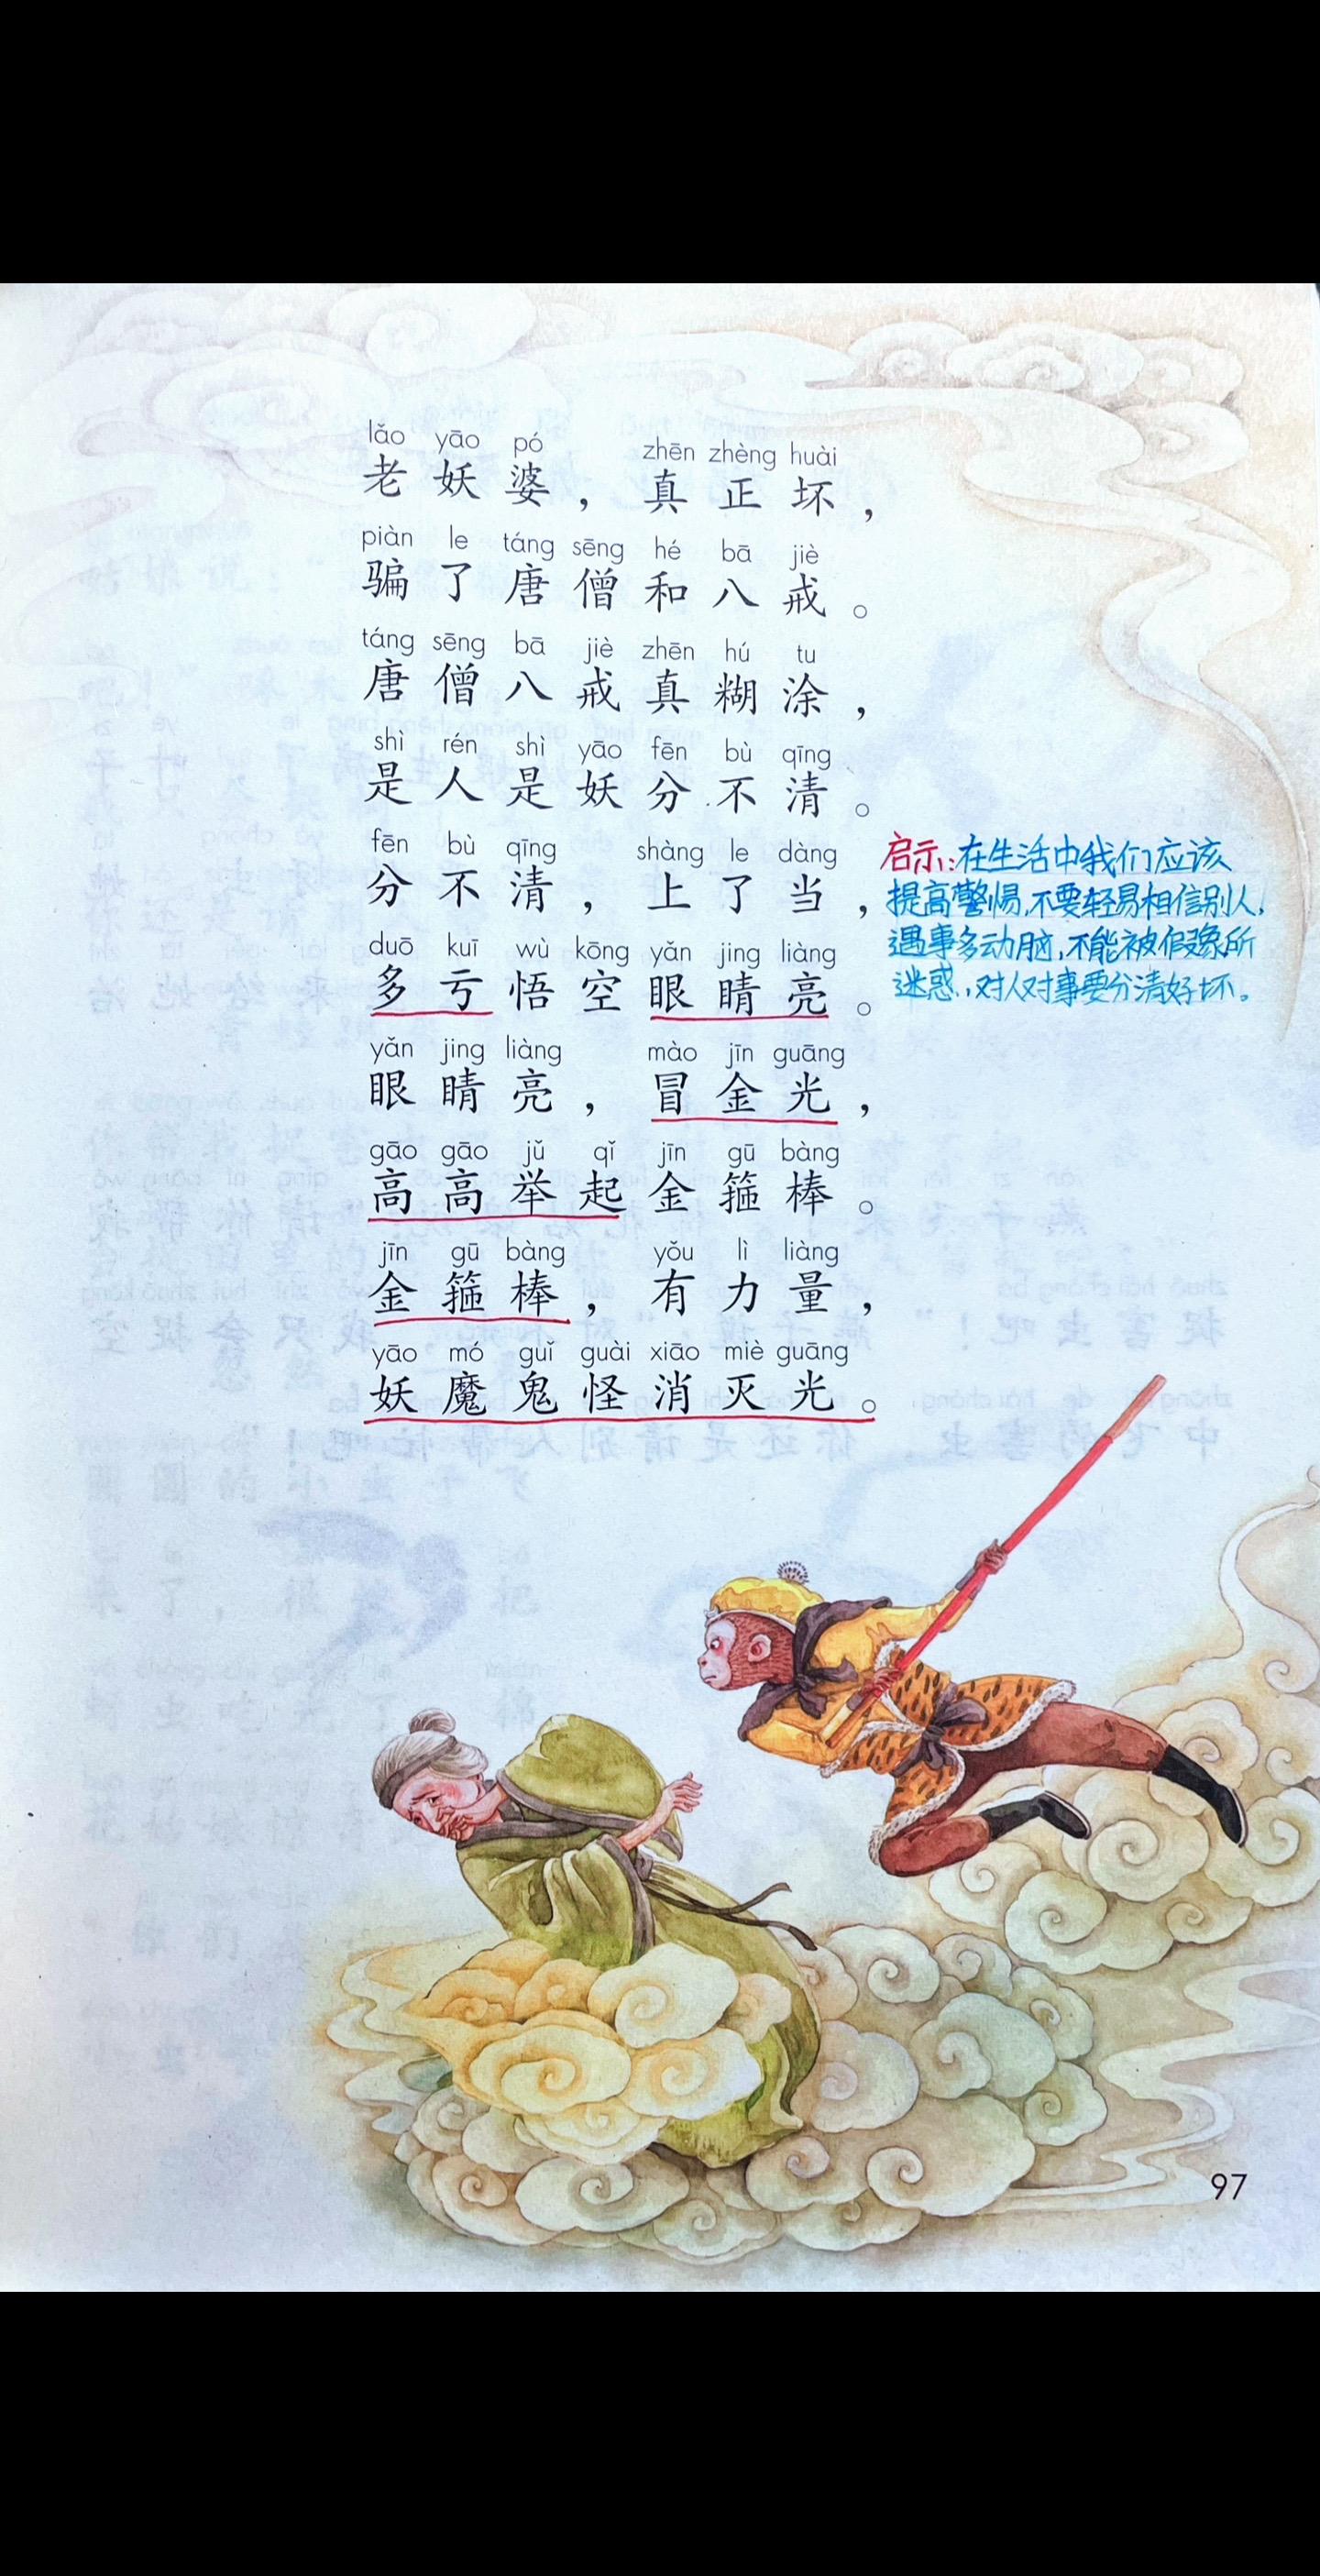 lǎo yāo pó zhēn zhèng huài
老妖婆，真正坏，
piàn le táng sēng hé bā jiè
骗了唐僧和八戒。
táng sēng bā jiè zhēn hú tu
唐僧八戒真糊涂，
shì rén shì yāo fēn bù qīng
是人是妖分不清。
fēn bù qīng shàng le dàng
分不清，上了当，
duō kuī wù kōng yǎn jing liàng
多亏悟空眼睛亮。
yǎn jing liàng mào jīn guāng
眼睛亮，冒金光，
gāo gāo jǔ qǐ jīn gū bàng
高高举起金箍棒。
jīn gū bàng yǒu lì liàng
金箍棒，有力量，
yāo mó guǐ guài xiāo miè guāng
妖魔鬼怪消灭光。
启示：在生活中我们应该
提高警惕，不要轻易相信别人，
遇事多动脑，不能被假象所
迷惑，对人对事要分清好坏。
97